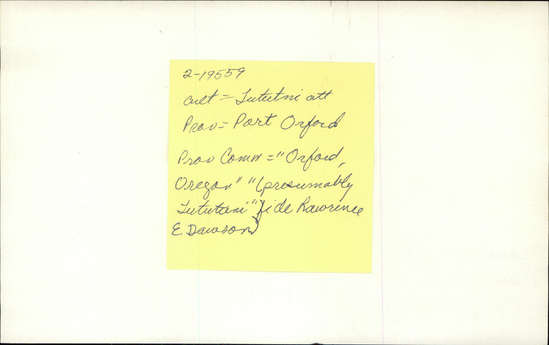 2-19559
Cult = Tututni att
Prov = Port Orford
Prov Comm = "Orford,
Oregon" "(presumably
Tututani" fide Lawrence
E Dawson)